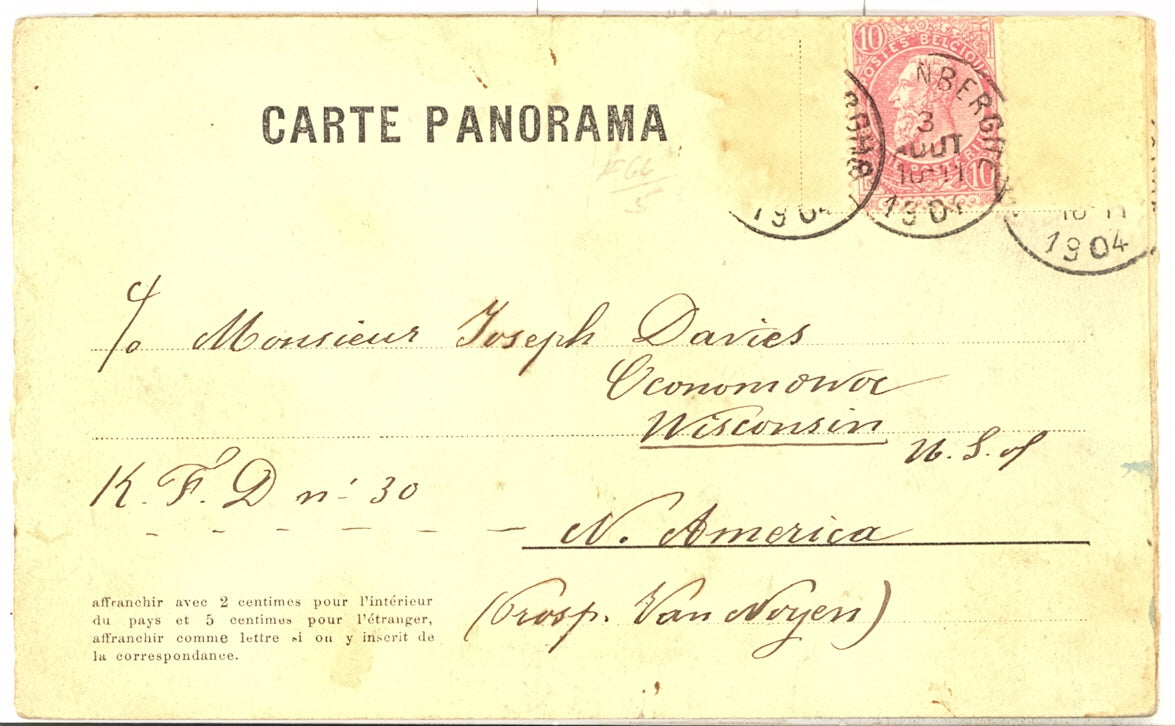 CARTE PANORAMA
10
POSTES BELGIQUE
10
NBERGHE
3
AOUT
10-11
1904
1904
10-11
1904
#66
5
c/o Monsieur Joseph Davies
Oconomowoc
Wisconsin
U. S. of
R. F. D nº 30
N. America
(Prosp. Van Noyen)
affranchir avec 2 centimes pour l'intérieur
du pays et 5 centimes pour l'étranger,
affranchir comme lettre si on y inscrit de
la correspondance.